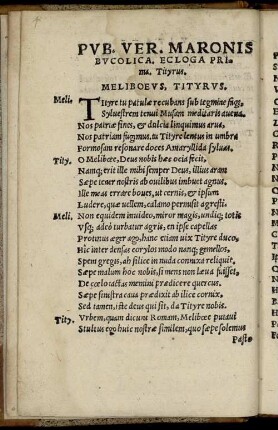 PVB. VER. MARONIS
BVCOLICA. ECLOGA PRI-
ma. Tityrus.
MELIBOEVS, TITYRVS.
Meli. Tityre tu patulæ recubans sub tegmine fagi,
Syluestrem tenui Musam meditaris auena.
Nos patriæ fines, & dulcia linquimus arua.
Nos patriam fugimus, tu Tityre lentus in umbra
Formosam resonare doces Amaryllida syluas.
Tity. O Meliboee, Deus nobis hæc ocia fecit,
Namq; erit ille mihi semper Deus, illius aram
Sæpe tener nostris ab ouilibus imbuet agnus.
Ille meas errare boues, ut cernis, et ipsum
Ludere, quæ uellem, calamo permisit agresti.
Meli. Non equidem inuideo, miror magis, undiq; totis
Vsq; adeò turbatur agris, en ipse capellas
Protinus æger ago, hanc etiam uix Tityre duco,
Hic inter densas corylos modo nanq; gemellos,
Spem gregis, ah silice in nuda connixa reliquit.
Sæpe malum hoc nobis, si mens non læua fuisset,
De coelo tactas memini prædicere quercus.
Sæpe sinistra caua prædixit ab ilice cornix.
Sed tamen, iste deus qui sit, da Tityre nobis.
Tity. Vrbem, quam dicunt Romam, Meliboee putaui
Stultus ego huic nostræ similem, quo sæpe solemus
Pasto